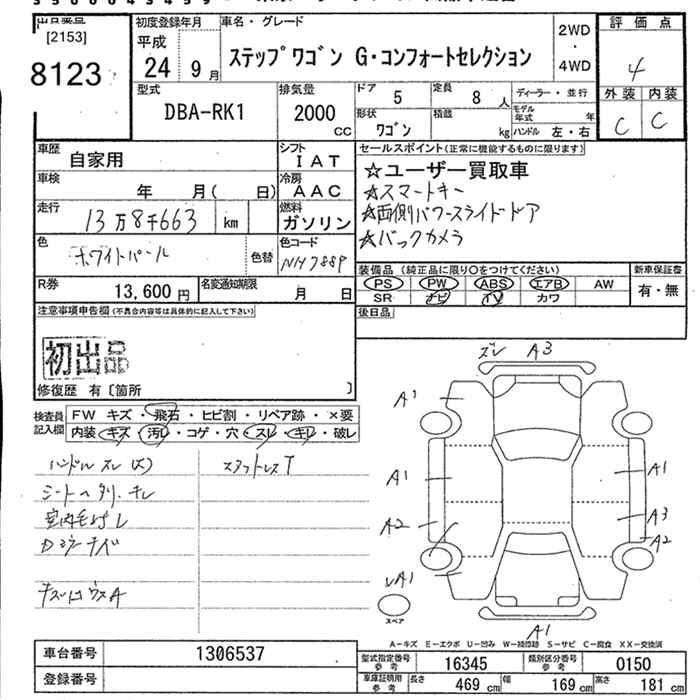 [2153]
8123
初度登録年月
平成
24 9月
車名・グレード
ステップワゴン G・コンフォートセレクション
2WD
・
4WD
評価点
4
外装 内装
C C
型式
DBA-RK1
排気量
2000
CC
ドア 5
定員 8人
形状 ワゴン
積載 kg
ディーラー・並行
モデル年式 年
ハンドル 左・右
車歴 自家用
シフト IAT
車検 年 月( 日)
冷房 AAC
走行 13万8千663 km
燃料 ガソリン
色 ホワイトパール
色替
色コード NH788P
R券 13,600円
名変通知期限 月 日
セールスポイント(正常に機能するものに限ります)
☆ユーザー買取車
☆スマートキー
☆両側パワースライドドア
☆バックカメラ
装備品(純正品に限り〇をつけてください)
新車保証書
PS PW ABS エアB AW
SR ナビ TV カワ
有・無
後日品
注意事項申告欄(不具合内容等は具体的に記入して下さい)
初出品
修復歴 有〔箇所 〕
検査員記入欄
FW キズ・飛石・ヒビ割・リペア跡・×要
内装 キズ・汚レ・コゲ・穴・スレ・キレ・破レ
ハンドル スレ
スタットレスT
シート ヘタリ・キレ
ズレ A3
A1
A1
A1
A2
A3
A2
A1
A1
スペア
A-キズ E-エクボ U-凹み W-補修跡 S-サビ C-腐食 XX-交換済
車台番号 1306537
登録番号
型式指定番号 参考 16345
類別区分番号 参考 0150
車庫証明用 参考
長さ 469cm
幅 169cm
高さ 181cm